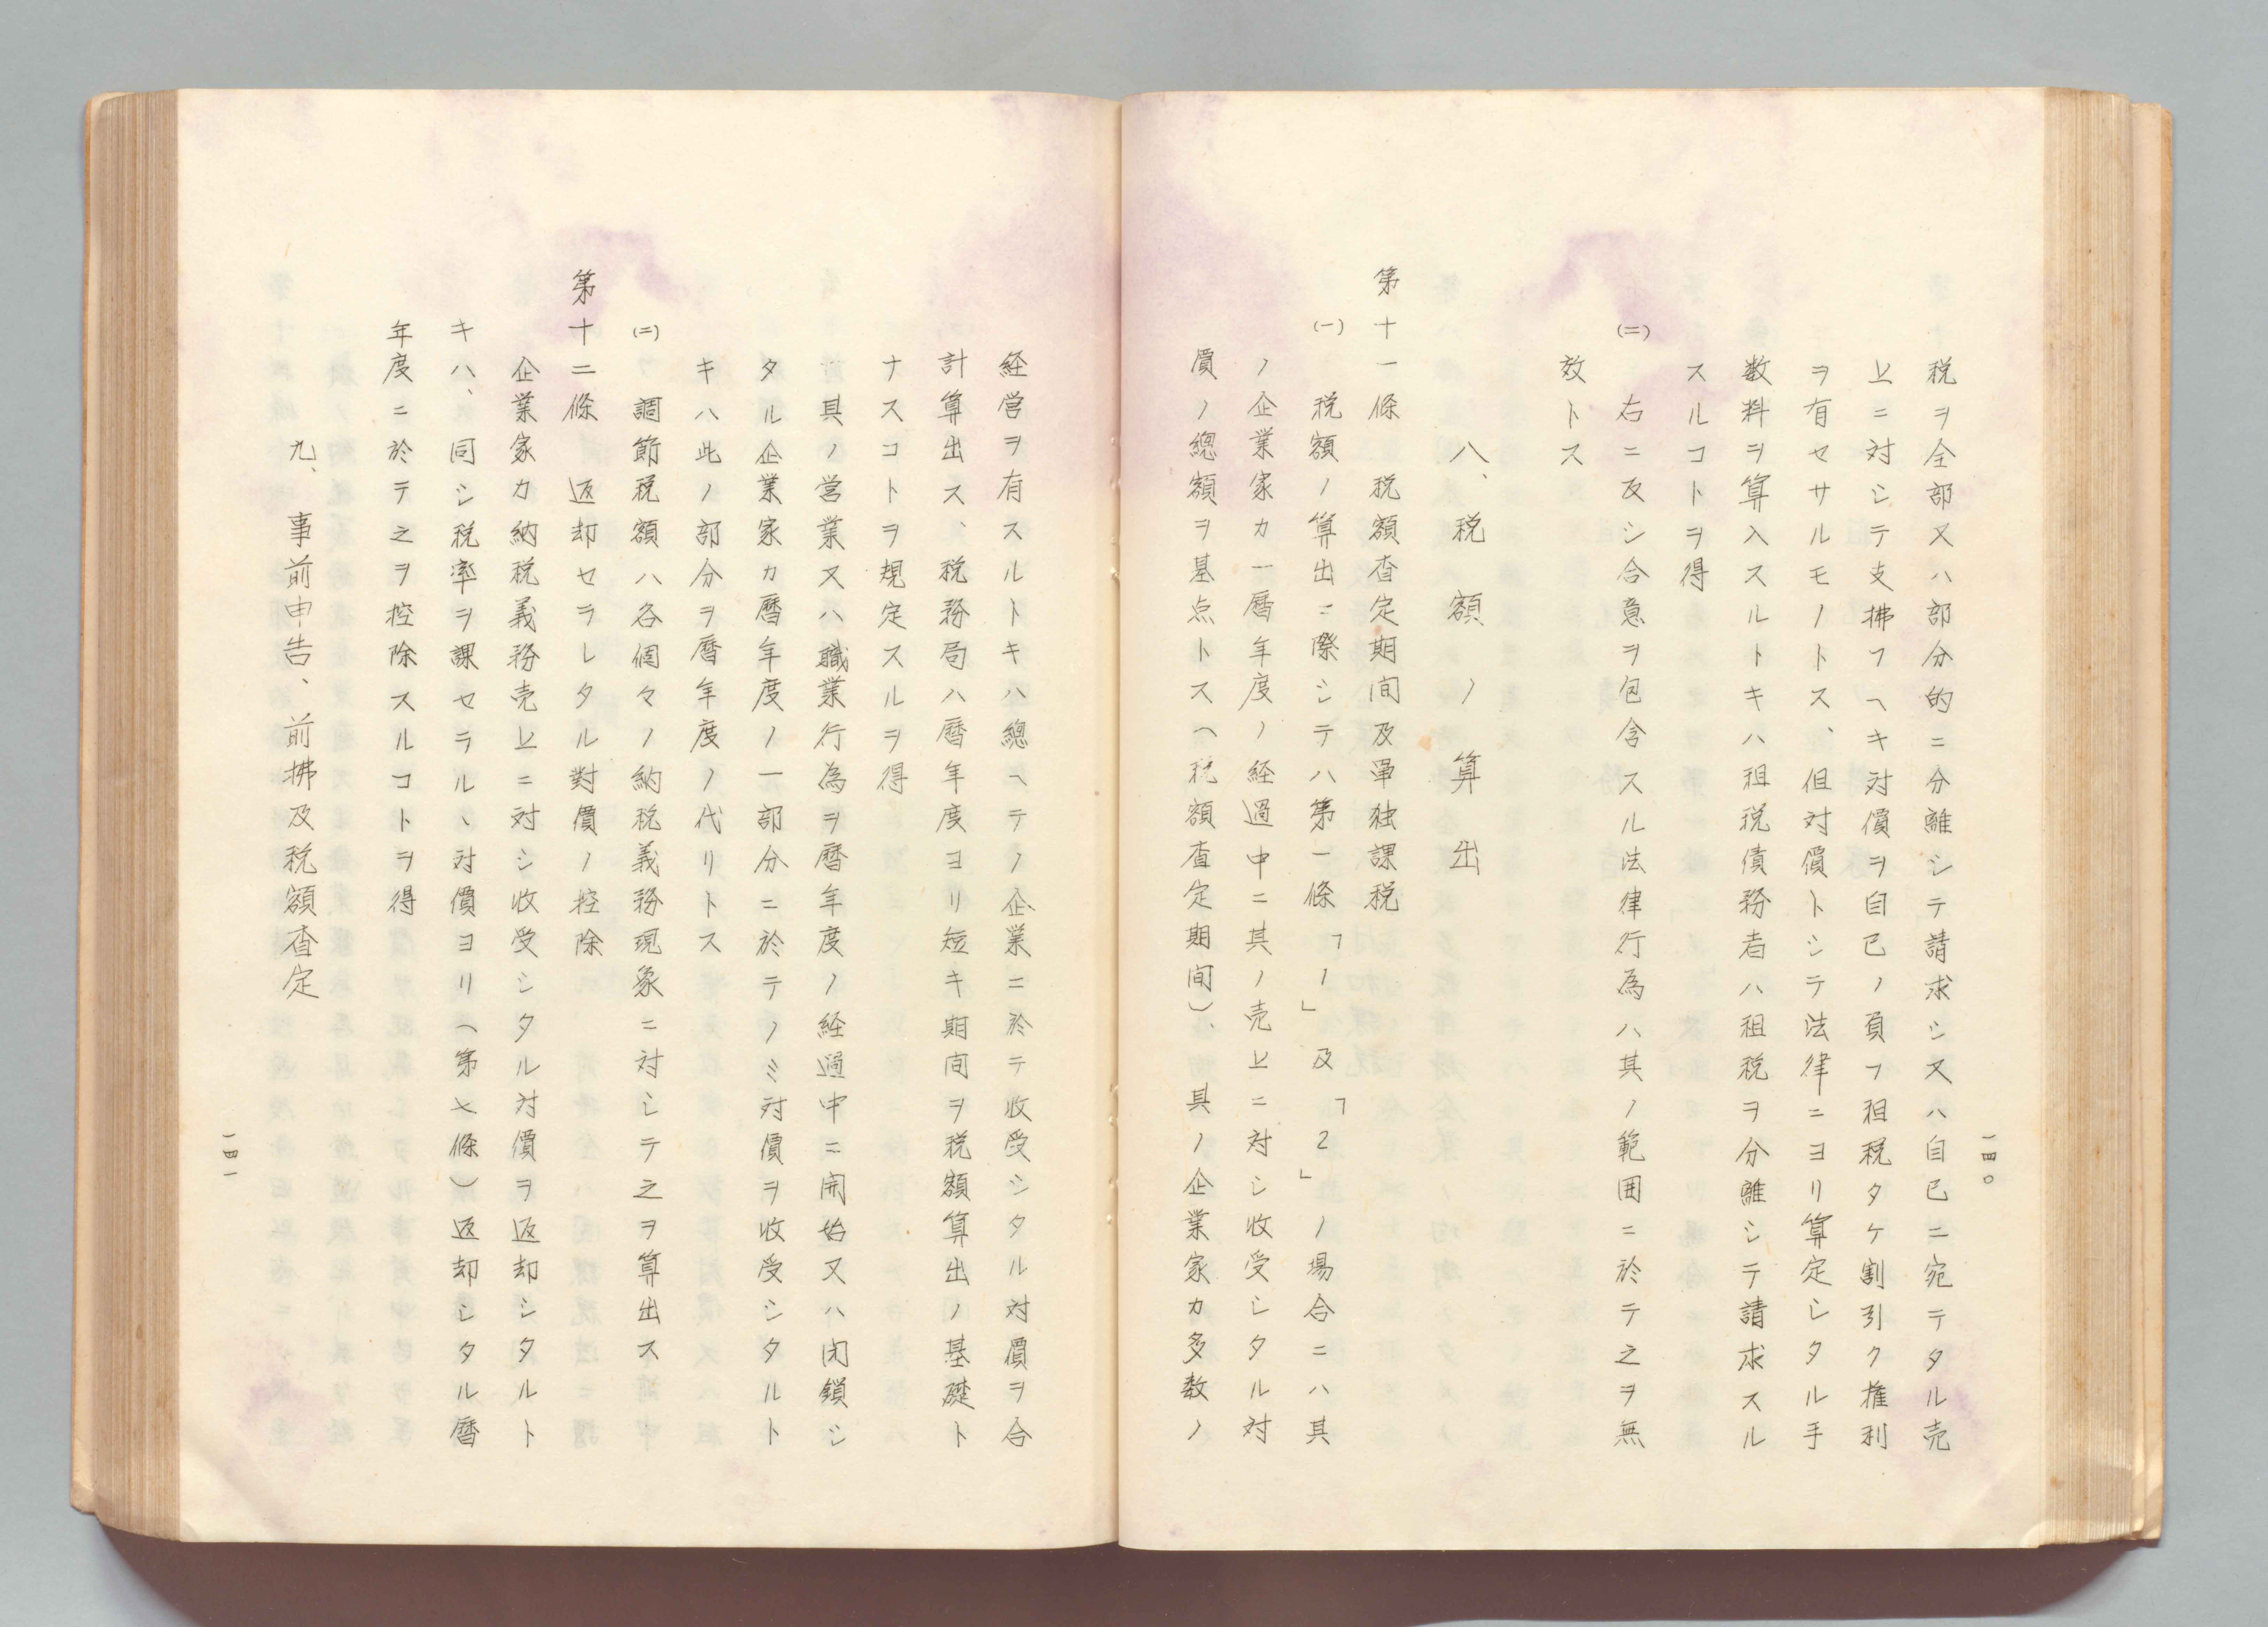 一四〇
税ヲ全部又ハ部分的ニ分離シテ請求シ又ハ自己ニ宛テタル売
上ニ対シテ支拂フヘキ対價ヲ自己ノ負フ租税タケ割引ク権利
ヲ有セサルモノトス、但対價トシテ法律ニヨリ算定シタル手
数料ヲ算入スルトキハ租税債務者ハ租税ヲ分離シテ請求スル
スルコトヲ得
(二) 右ニ反シ合意ヲ包含スル法律行為ハ其ノ範囲ニ於テ之ヲ無
効トス
八、税額ノ算出
第十一條 税額査定期间及單独課税
(一) 税額ノ算出ニ際シテハ第一條「1」及「2」ノ場合ニハ其
ノ企業家カ一暦年度ノ経過中ニ其ノ売上ニ対シ收受シタル対
價ノ總額ヲ基点トス(税額査定期间)、其ノ企業家カ多数ノ
経営ヲ有スルトキハ總ヘテノ企業ニ於テ收受シタル対價ヲ合
計算出ス、税務局ハ暦年度ヨリ短キ期间ヲ税額算出ノ基礎ト
ナスコトヲ規定スルヲ得
其ノ営業又ハ職業行為ヲ暦年度ノ経過中ニ開始又ハ闭鎖シ
タル企業家カ暦年度ノ一部分ニ於テノミ対價ヲ收受シタルト
キハ此ノ部分ヲ暦年度ノ代リトス
(二) 調節税額ハ各個々ノ納税義務現象ニ対シテ之ヲ算出ス
第十二條 返却セラレタル對價ノ控除
企業家カ納税義務売上ニ対シ收受シタル対價ヲ返却シタルト
キハ、同シ税率ヲ課セラル、対價ヨリ(第七條)返却シタル暦
年度ニ於テ之ヲ控除スルコトヲ得
九、事前申告、前拂及税額査定
一四一